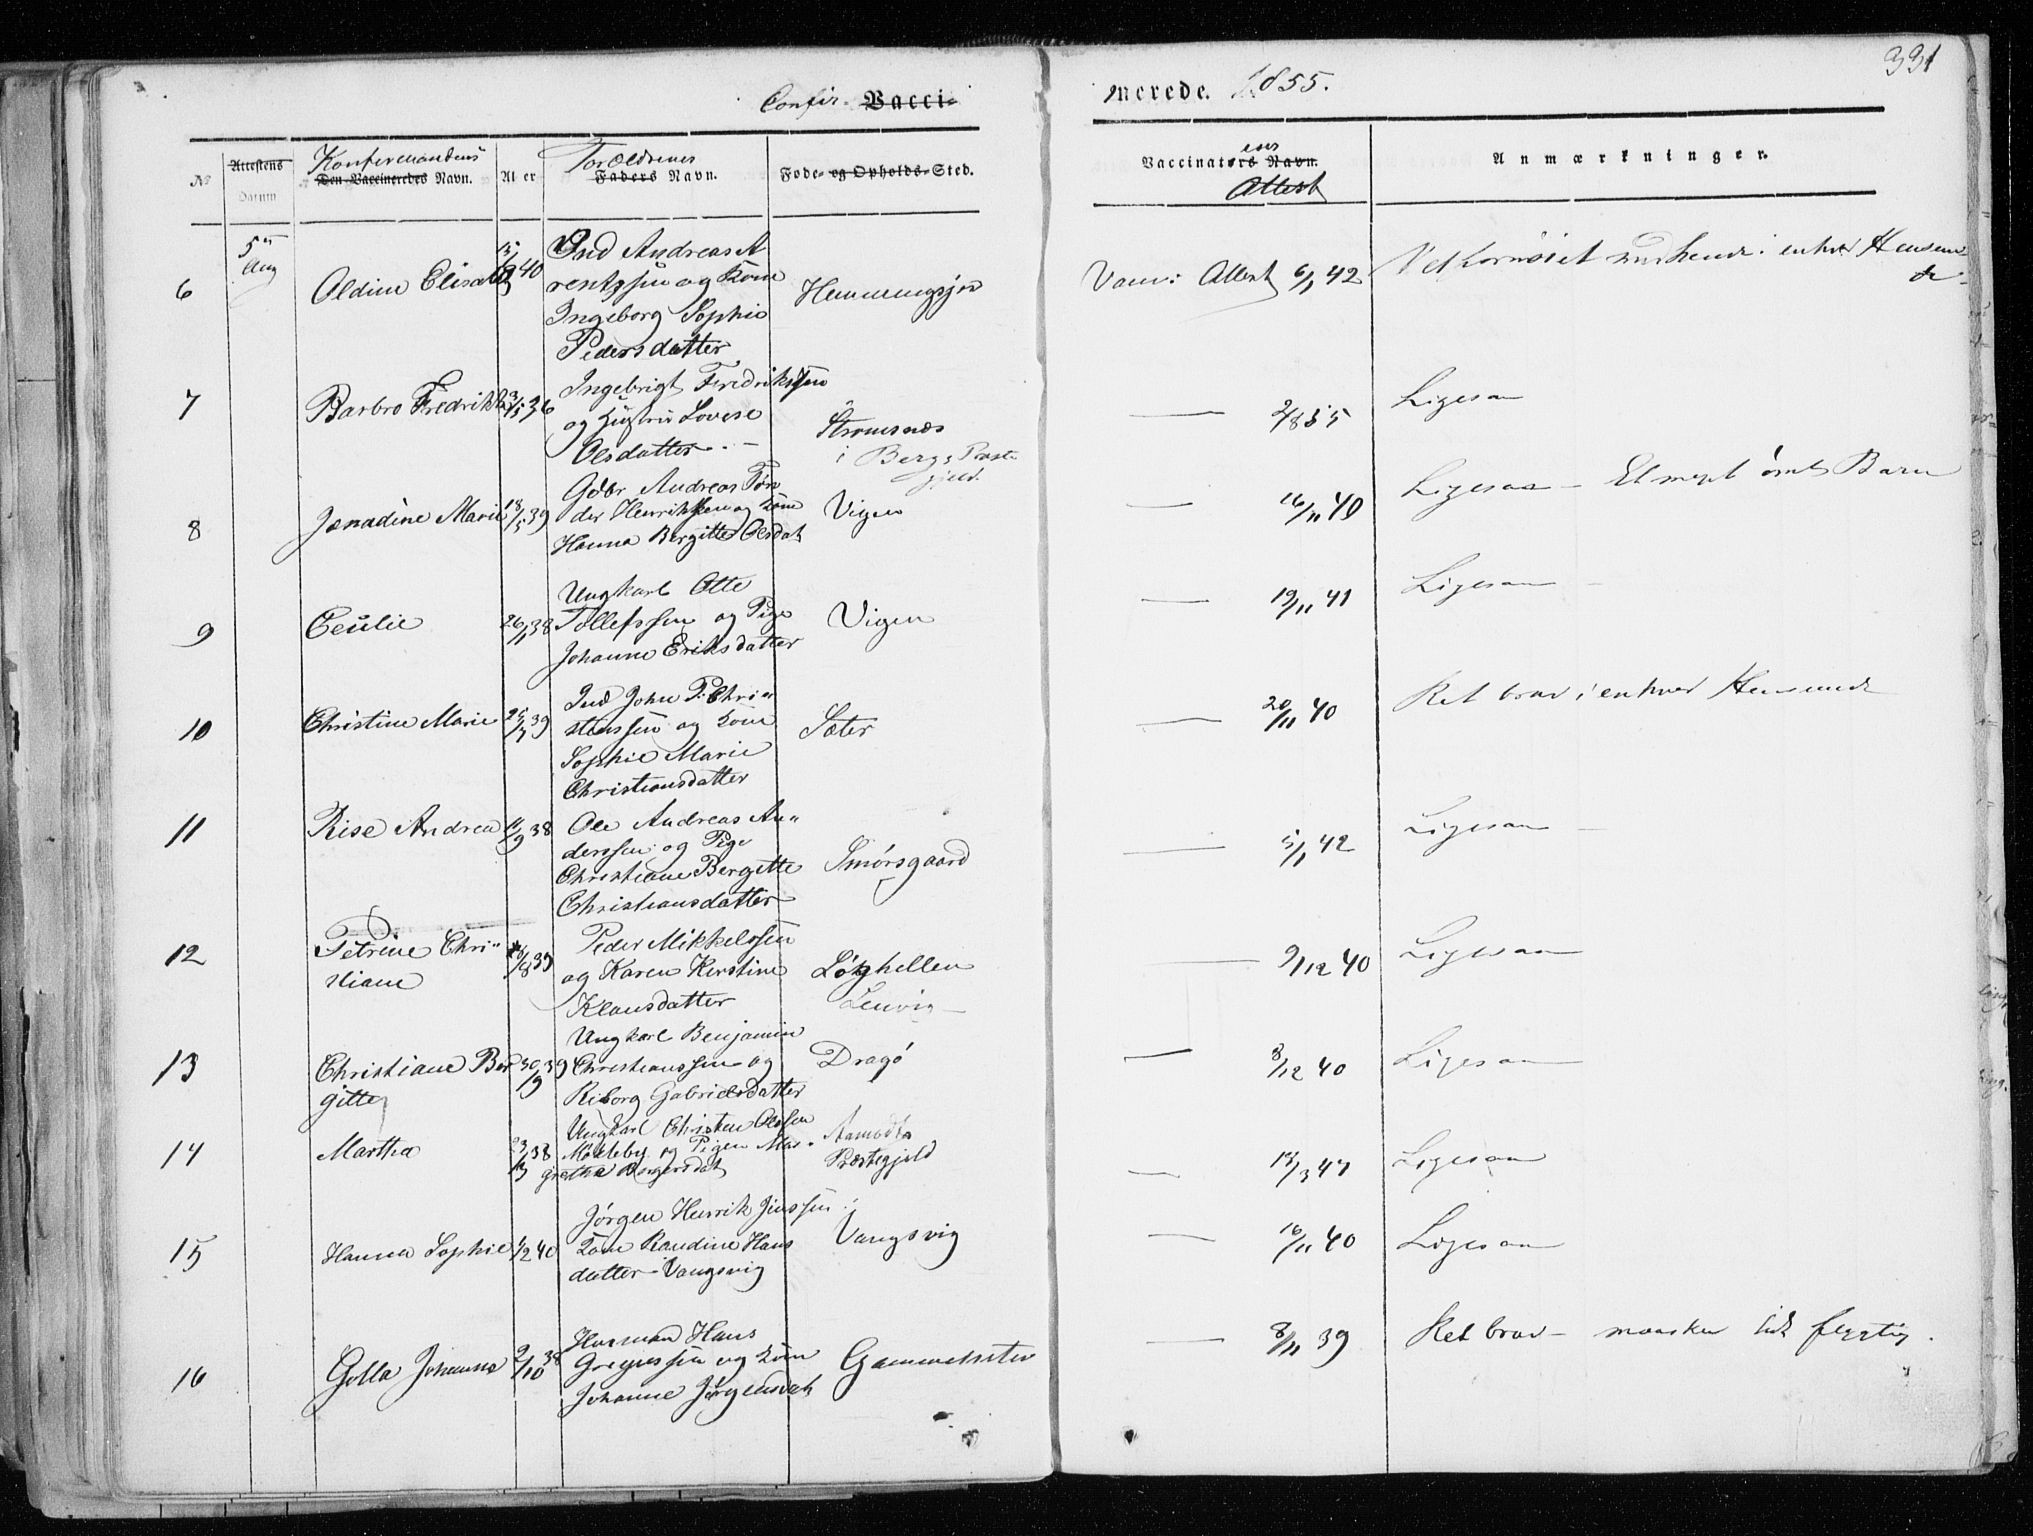 331
Confir- Vacci-
merede. 1855.
No
Attestens
Datum
Konfirmandens
Den Vaccineredes Navn.
Al er
Forældrenes
Faders Navn.
Føde- og Opholds-Sted.
ens
Vaccinators Navn.
Attest
Anmærkninger.
5te
Aug
6
Oldine Elisabeth
40
Ind Andreas A
rentzsen og Kone
Ingeborg Sophie
Pedersdatter
Hemmingsjor
Vacci: Attest 6/1 42
i enhver Henseen
de
7
Barbro Fredrikke
36
Ingebrigt Fredrikssen
og Hustru Lovise
Olsdatter
Strømsnes
i Bergs Præste
gjeld
2/8 55
Ligesaa
8
Jenadine Marie
18/5 39
Gdbr Andreas Tøn
der Henrikssen og Kone
Hanna Bergitte Olsdat
Vigen
16/11 40
Ligesaa Barn
9
Cecilie
26/1 38
Ungkarl Otte
Tollefssen og Pige
Johanne Eriksdatter
Vigen
19/11 41
Ligesaa
10
Christine Marie
25/7 39
Ind John P: Chri
stenssen og Kone
Sophie Marie
Christiansdatter
Sæter
20/11 40
Ret brav i enhver Henseende
11
Rise Andrea
11/9 38
Ole Andreas An
derssen og Pige
Christiane Bergitte
Christiansdatter
Smörsgaard
5/1 42
Ligesaa
12
Petrine Chri
stiane
39
Peder Mikkelssen
og Karen Kirstine
Klausdatter
Løkhellen
Lenvig
9/12 40
Ligesaa
13
Christiane Ber
gitte
30/9 39
Ungkarl Benjamin
Christianssen og
Riborg Gabrielsdatter
Dragø
8/12 40
Ligesaa
14
Martha
38
Ungkarl Christen Olssen
Mokleby og Pigen Mar
gretha Asgersdat
Aamodts
Præstegjeld
Ligesaa
15
Hanna Sophie
1/2 40
Jørgen Henrik Jenssen
Kone Randine Hans
datter Vangsvig
Vangsvig
16/11 40
Ligesaa
16
Golla Johanna
9/10 38
Husmand Hans
Gregussen og Kone
Johanne Jørgensdat
Gammelseter
8/11 39
Ret brav – maaskee lidt flygtig.